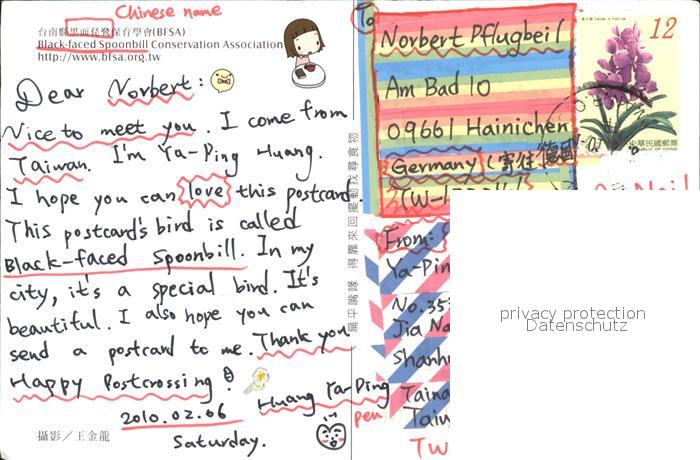 Chinese name
台南縣黑面琵鷺保育學會(BFSA)
Black-faced Spoonbill Conservation Association
http://www.bfsa.org.tw
Dear Norbert:
Nice to meet you. I come from
Taiwan. I'm Ya-Ping Huang.
I hope you can love this postcard.
This postcard's bird is called
Black-faced Spoonbill. In my
city, it's a special bird. It's
beautiful. I also hope you can
send a postcard to me. Thank you
Happy Postcrossing!
Huang Ya-Ping
2010.02.06
Saturday.
攝影／王金龍
扁平嘴喙 得靠來回擺動找尋食物
To
Norbert Pflugbeil
Am Bad 10
09661 Hainichen
Germany (寄往德國)
From:
Ya-Pin
No.35
Jia Na
Shanh
Taina
Taiw
TW
pen
12
中華民國郵票
REPUBLIC OF CHINA
privacy protection
Datenschutz